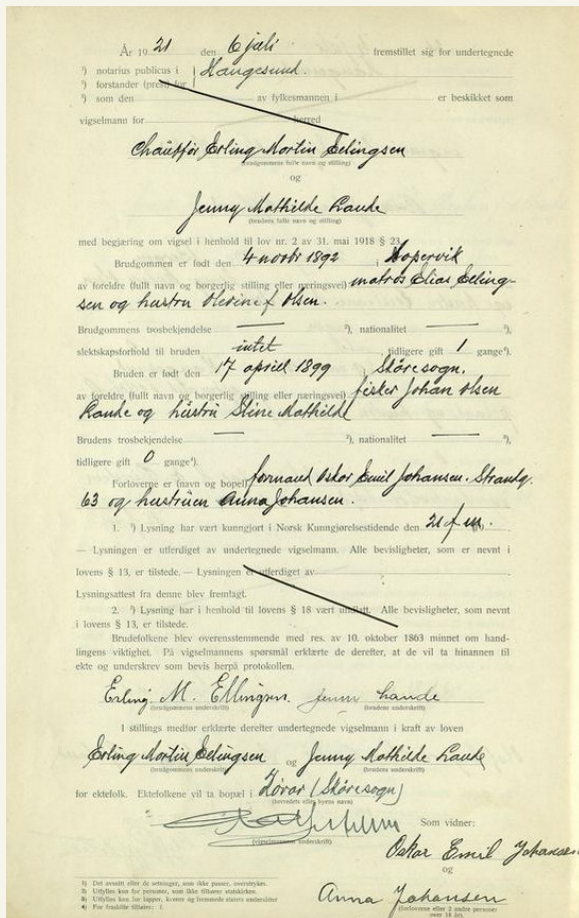 År 1921 den 6 juli fremstillet sig for undertegnede
¹) notarius publicus i Haugesund.
²) forstander (prest) for
³) som den av fylkesmannen i er beskikket som
vigselmann for herred
Chauffør Erling Mortin Erlingsen
(brudgommens fulle navn og stilling)
og
Jenny Mathilde Lande
(brudens fulle navn og stilling)
med begjæring om vigsel i henhold til lov nr. 2 av 31. mai 1918 § 23.
Brudgommen er født den 4 novbr 1892, i Kopervik
av foreldre (fullt navn og borgerlig stilling eller næringsvei) matros Elias Erling-
sen og hustru Olevine f. Olsen.
Brudgommens trosbekjendelse — ²), nationalitet — ³),
slektskapsforhold til bruden intet, tidligere gift 1 gange⁴).
Bruden er født den 17 april 1899, Skåresogn.
av foreldre (fullt navn og borgerlig stilling eller næringsvei) fisker Johan Olsen
Lande og hustru Stine Mathilde
Brudens trosbekjendelse — ²), nationalitet — ³),
tidligere gift 0 gange⁴).
Forloverne er (navn og bopel) formand Oskar Emil Johansen. Strandg.
63 og hustruen Anna Johansen.
1. ¹) Lysning har vært kunngjort i Norsk Kunngjørelsestidende den 21 f.m.
— Lysningen er utferdiget av undertegnede vigselmann. Alle bevisligheter, som er nevnt i
lovens § 13, er tilstede. — Lysningen er utferdiget av
Lysningsattest fra denne blev fremlagt.
2. ¹) Lysning har i henhold til lovens § 18 vært undlatt. Alle bevisligheter, som nevnt
i lovens § 13, er tilstede.
Brudefolkene blev overensstemmende med res. av 10. oktober 1863 minnet om hand-
lingens viktighet. På vigselmannens spørsmål erklærte de derefter, at de vil ta hinannen til
ekte og underskrev som bevis herpå protokollen.
Erling M. Ellingsen. Jenny Lande
(brudgommens underskrift) (brudens underskrift)
I stillings medfør erklærte derefter undertegnede vigselmann i kraft av loven
Erling Mortin Erlingsen og Jenny Mathilde Lande
(brudgommens underskrift) (brudens underskrift)
for ektefolk. Ektefolkene vil ta bopæl i (Skåresogn)
(herredets eller byens navn)
Som vidner:
(vigselmannens underskrift)
Oskar Emil Johansen
og
Anna Johansen
(forloverne eller 2 andre personer
over 18 år).
¹) Det avsnitt eller de setninger, som ikke passer, overstrykes.
²) Utfylles kun for personer, som ikke tilhører statskirken.
³) Utfylles kun for lapper, kvener og fremmede staters undersåtter
⁴) For fraskilte tilføies: f.